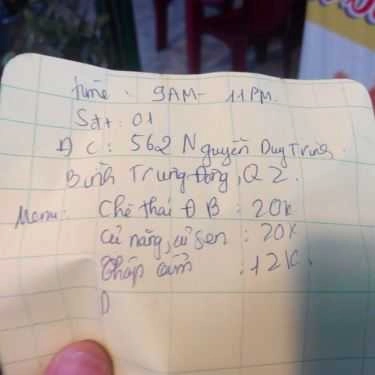 time : 9AM - 11PM.
Sđt: 01
Đ C: 562 Nguyễn Duy Trinh.
Bình Trưng Đông, Q2.
Menu: Chè thái Đ B : 20k
củ năng, củ sen : 20k
Thập cẩm : 12k.